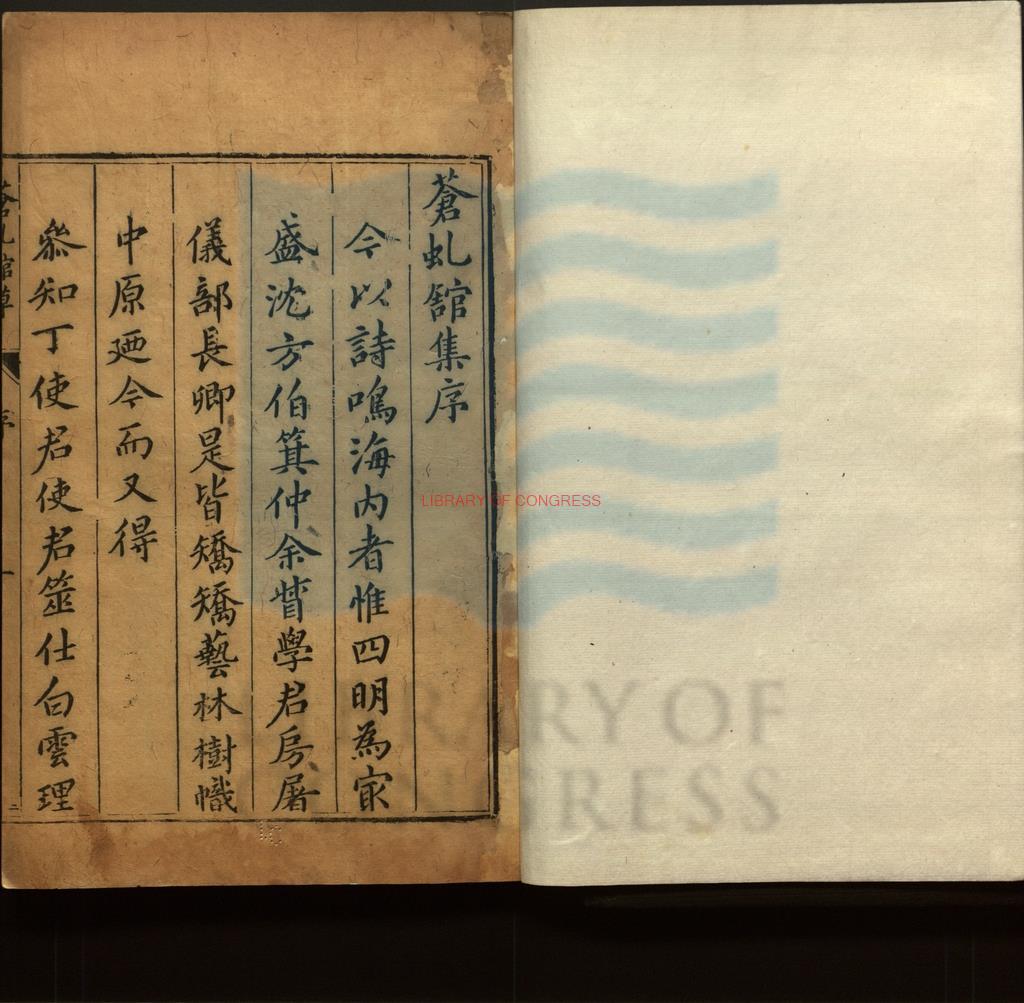 蒼虬舘集序
今以詩鳴海内者惟四明為㝡
盛沈方伯箕仲余督學君房屠
儀部長卿是皆矯矯藝林樹幟
中原廼今而又得
叅知丁使君使君筮仕白雲理
序
一
LIBRARY OF CONGRESS
LIBRARY OF
CONGRESS